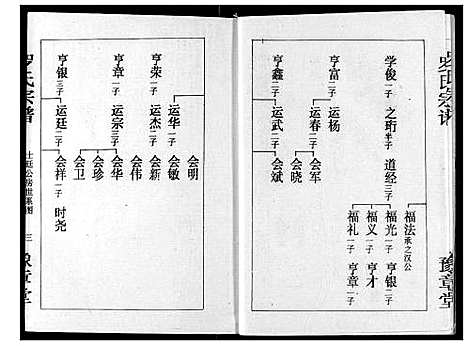 罗氏宗谱
豫章堂
学俊一子 之珩半子 道经三子
福法承之汉公
福光一子 亨银二子
福义一子 亨才
福礼一子 亨章二子
亨富二子 运杨
运春二子 会军
会晓
亨鑫二子 运武二子 会斌
运华二子 会明
会敏
亨荣二子 运杰二子 会新
会伟
亨章二子 运宗三子 会华
会珍
会卫
亨银三子 运廷二子 会祥一子 时尧
罗氏宗谱
世系图
三
豫章堂